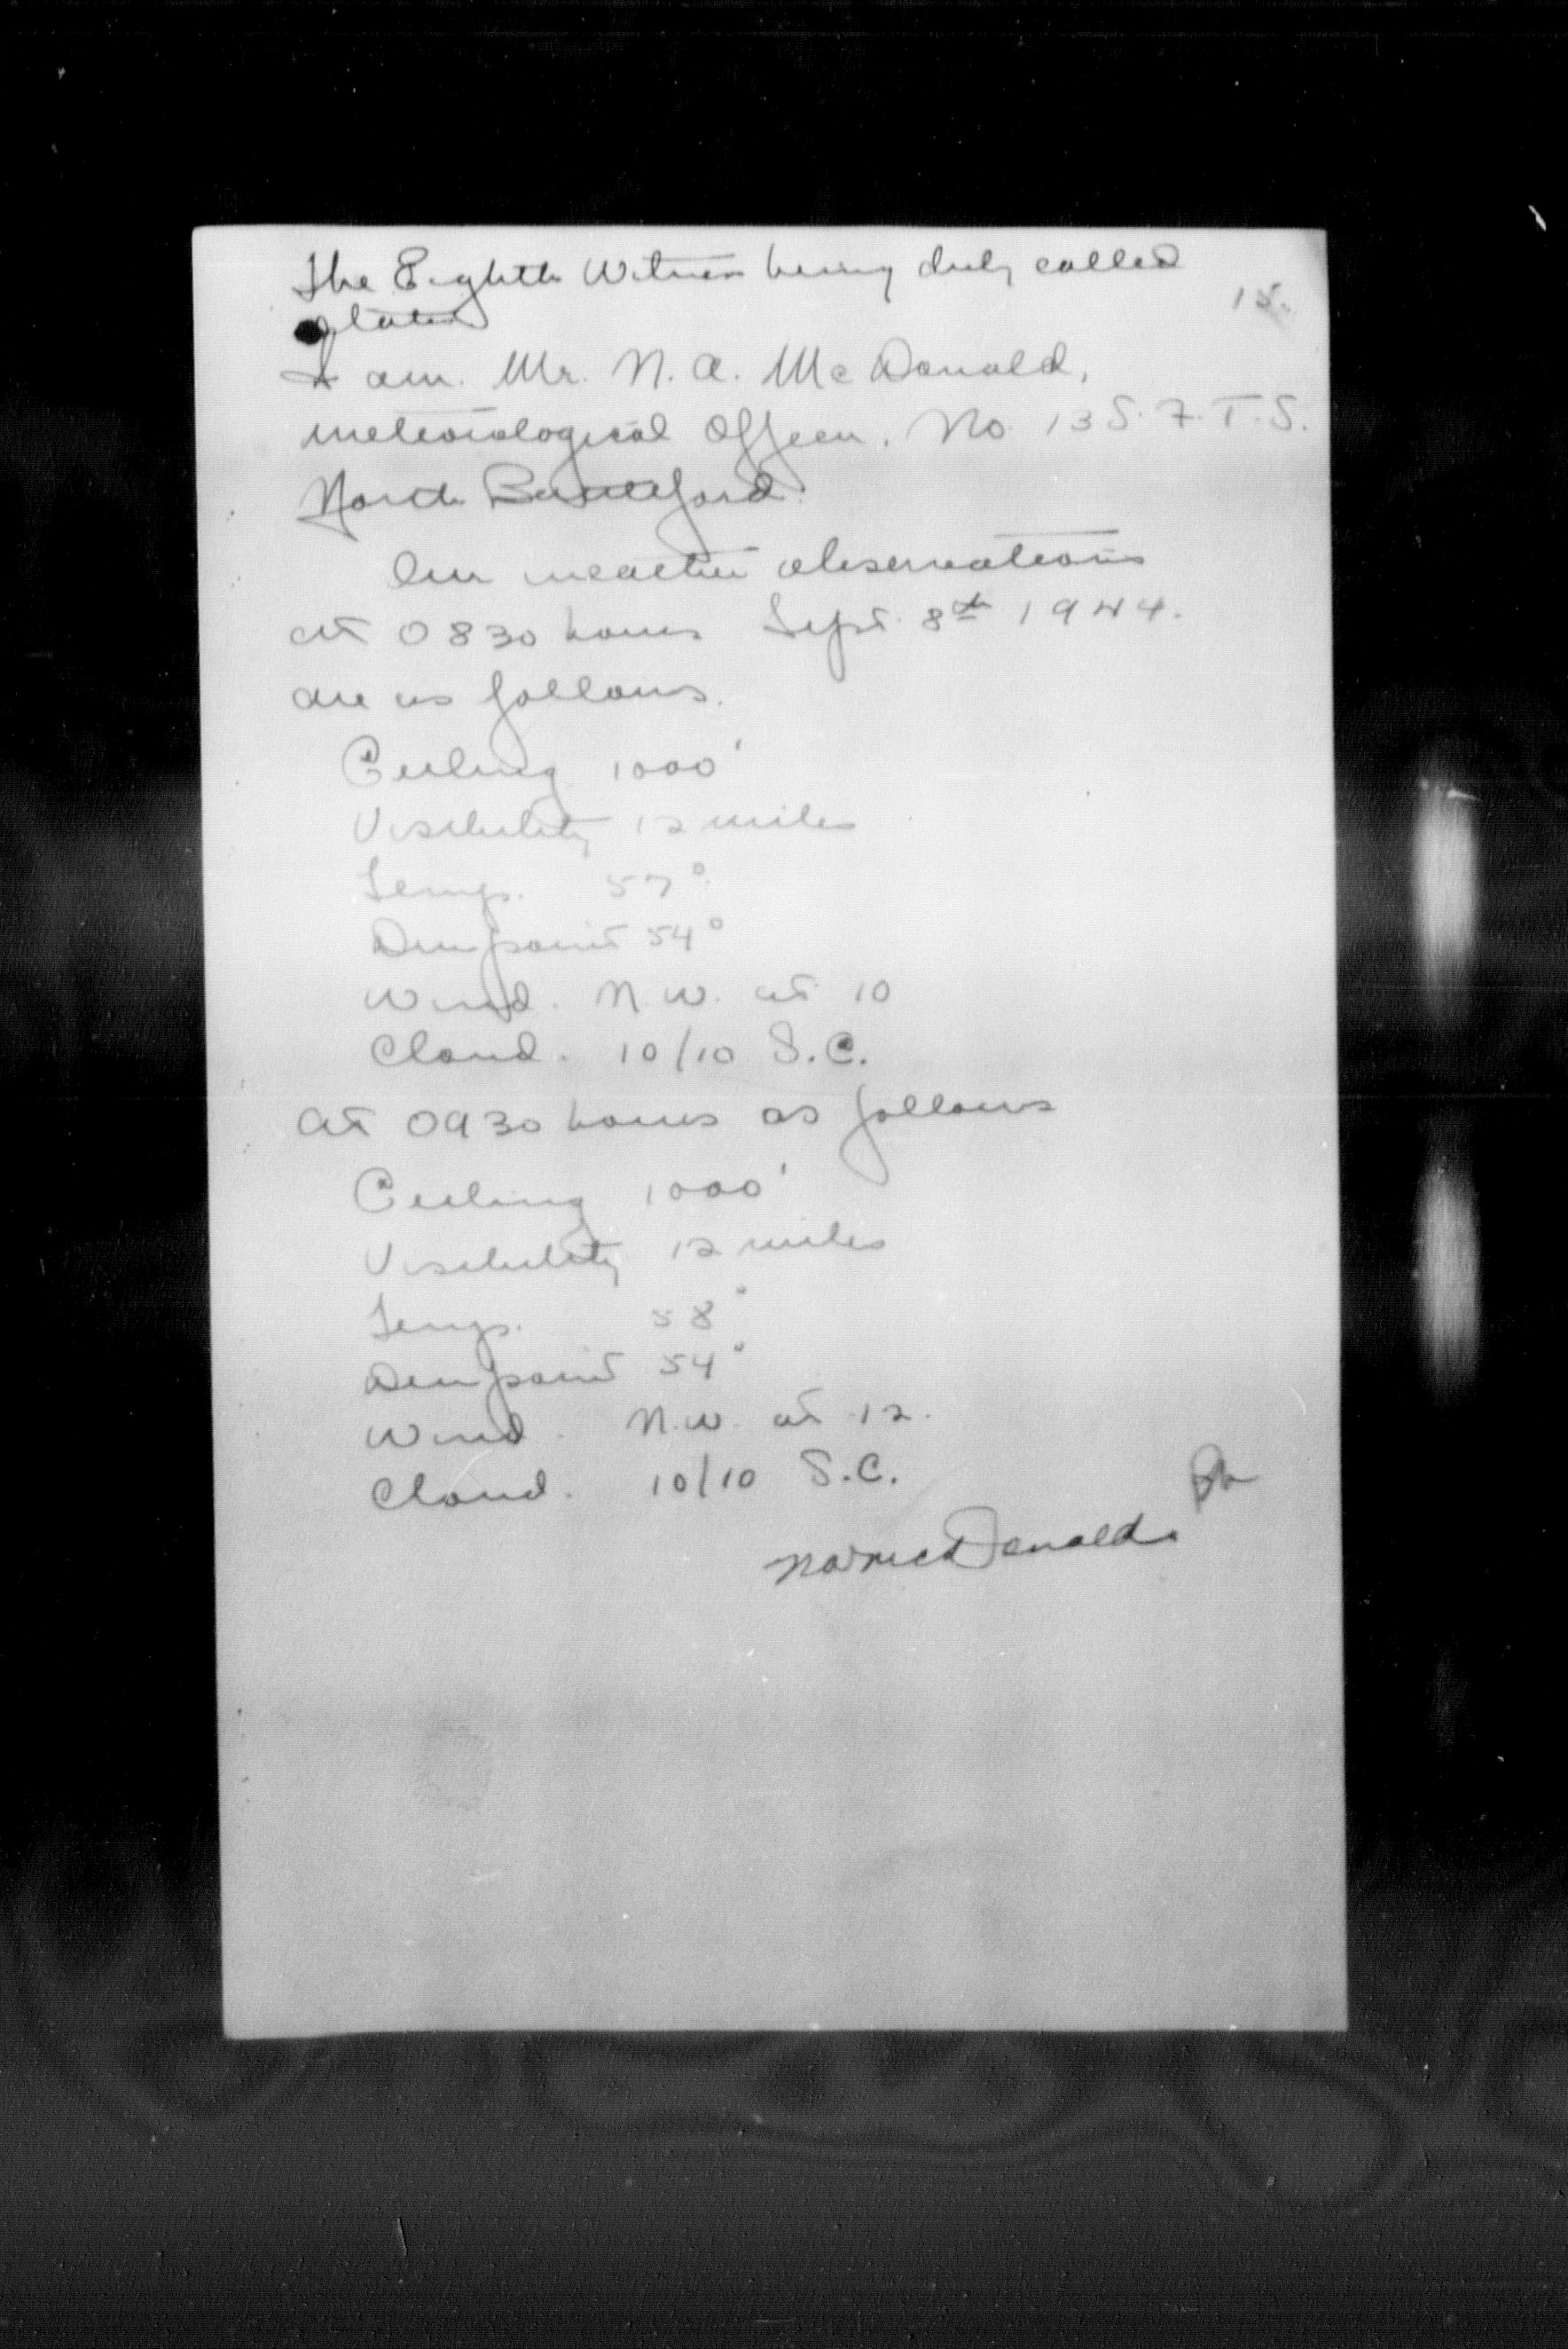 The Eighth Witness being duly called
15.
states
I am. Mr. N. A. McDonald,
meteorological Officer, No. 13 S.F.T.S.
North Battleford.
Our weather observations
at 0830 hours Sept. 8th 1944.
are as follows.
Ceiling 1000'
Visibility 12 miles
Temp. 57°
Dewpoint 54°
Wind. N.W. at 10
Cloud. 10/10 S.C.
at 0930 hours as follows
Ceiling 1000'
Visibility 12 miles
Temp. 58°
Dewpoint 54°
Wind. N.W. at 12.
Cloud. 10/10 S.C.
NAMcDonald.